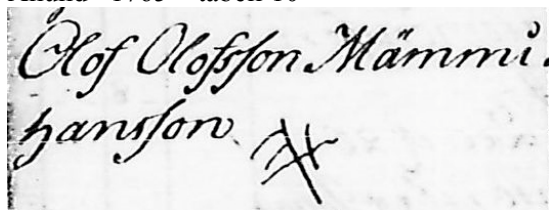 Olof Olofsson Mämmi.
hansson